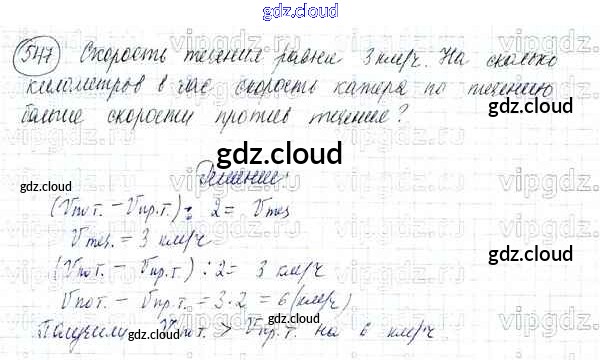 gdz.cloud
547 Скорость течения равна 3 км/ч. На сколько
gdz.cloud
километров в час скорость катера по течению
больше скорости против течения?
gdz.cloud
gdz.cloud
Решение:
gdz.cloud
(Vпо т. – Vпр.т.) : 2 = Vтеч
Vтеч. = 3 км/ч
gdz.cloud
(Vпо т. – Vпр.т.) : 2 = 3 км/ч
gdz.cloud
Vпо т. – Vпр.т. = 3·2 = 6 (км/ч)
gdz.cloud
Получили Vпо т. > Vпр.т. на 6 км/ч.